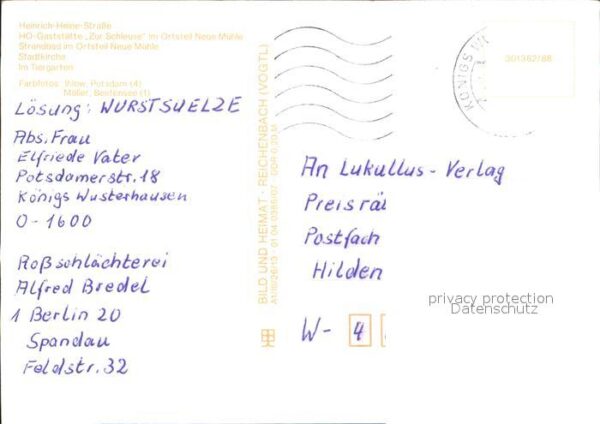 Heinrich-Heine-Straße
HO-Gaststätte „Zur Schleuse" im Ortsteil Neue Mühle
Strandbad im Ortsteil Neue Mühle
Stadtkirche
Im Tiergarten
Farbfotos: Wiow, Potsdam (4)
Müller, Berlensee (1)
Lösung: WURSTSUELZE
Abs. Frau
Elfriede Vater
Potsdamerstr. 18
Königs Wusterhausen
O-1600
Roßschlächterei
Alfred Bredel
1 Berlin 20
Spandau
Feldstr. 32
BILD UND HEIMAT · REICHENBACH (VOGTL)
KÖNIGS WU
301382/88
An Lukullus-Verlag
Preisrä
Postfach
Hilden
W- 4
privacy protection
Datenschutz